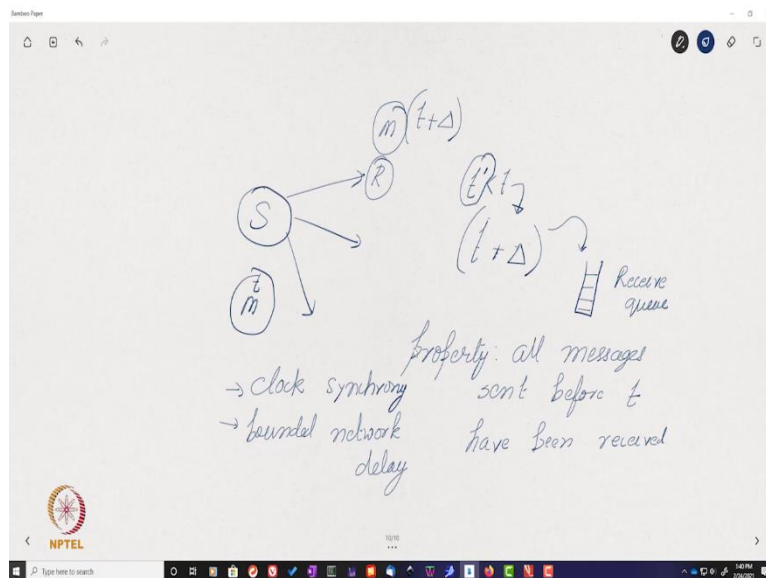 Bamboo Paper
m (t+Δ)
R
S
t' < t
(t + Δ)
m t
Receive
queue
property: all messages
sent before t
have been received
→ clock synchrony
→ bounded network
delay
NPTEL
10/10
Type here to search
1:40 PM
2/24/2021